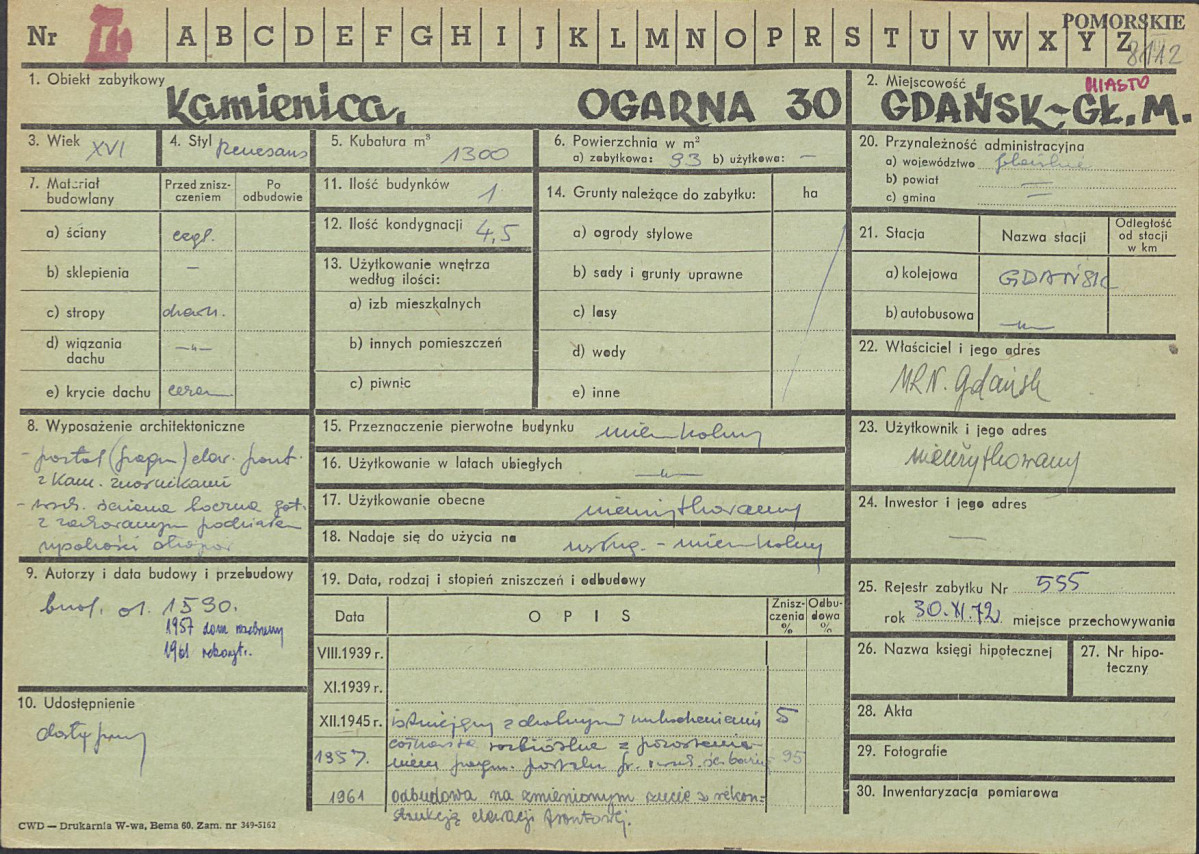 Nr II A B C D E F G H I J K L M N O P R S T U V W X Y Z
POMORSKIE
8112
1. Obiekt zabytkowy
Kamienica, OGARNA 30
2. Miejscowość
MIASTO
GDAŃSK-GŁ.M.
3. Wiek XVI
4. Styl Renesans
5. Kubatura m³ 1300
6. Powierzchnia w m²
a) zabytkowa: 93 b) użytkowa: —
7. Materiał budowlany
Przed zniszczeniem
Po odbudowie
a) ściany cegl.
b) sklepienia —
c) stropy drewn.
d) wiązania dachu —"—
e) krycie dachu ceram.
8. Wyposażenie architektoniczne
- portal (fragm) elew. front.
z kam. znosnikami
- wsch. ściana boczna got.
z zachowanym podziałem
wysokości
9. Autorzy i data budowy i przebudowy
bud. ok. 1590.
1957 dom rozebrany
1961 rekonstr.
10. Udostępnienie
dostępny
11. Ilość budynków 1
12. Ilość kondygnacji 4,5
13. Użytkowanie wnętrza
według ilości:
a) izb mieszkalnych
b) innych pomieszczeń
c) piwnic
14. Grunty należące do zabytku: ha
a) ogrody stylowe
b) sady i grunty uprawne
c) lasy
d) wody
e) inne
15. Przeznaczenie pierwotne budynku mieszkalny
16. Użytkowanie w latach ubiegłych —"—
17. Użytkowanie obecne nieużytkowany
18. Nadaje się do użycia na usług. - mieszkalny
19. Data, rodzaj i stopień zniszczeń i odbudowy
Data
O P I S
Zniszczenia %
Odbudowa %
VIII.1939 r.
XI.1939 r.
XII.1945 r. istniejący z drobnymi uszkodzeniami 5
1957. rozbiórkę z pozostawie-
niem fragm. portalu fr. wsch. śc. bocznej 95
1961 odbudowa na zmienionym rzucie z rekon-
strukcją elewacji frontowej.
20. Przynależność administracyjna
a) województwo gdańskie
b) powiat —
c) gmina —
21. Stacja
Nazwa stacji
Odległość od stacji w km
a) kolejowa GDAŃSK
b) autobusowa —"—
22. Właściciel i jego adres
MRN. Gdańsk
23. Użytkownik i jego adres
nieużytkowany
24. Inwestor i jego adres
—
25. Rejestr zabytku Nr 555
rok 30.XI.72 miejsce przechowywania
26. Nazwa księgi hipotecznej
27. Nr hipoteczny
28. Akta
29. Fotografie
30. Inwentaryzacja pomiarowa
CWD — Drukarnia W-wa, Bema 60, Zam. nr 349-5162